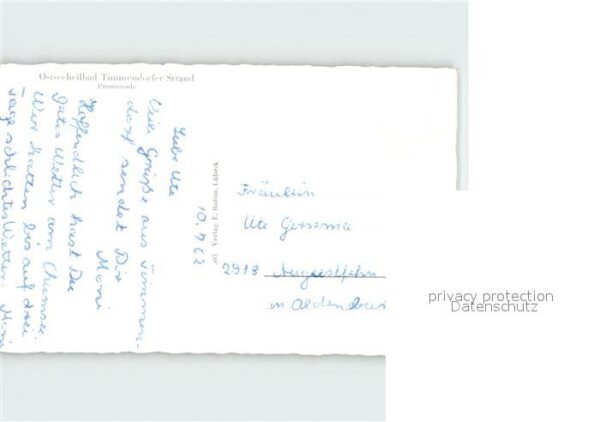 Ostseeheilbad Timmendorfer Strand
Promenade
10.7.62
Liebe Ute
Viele Grüße aus Timmen-
dorf sendet Dir
Moni
Hoffendlich hast Du
gutes Wetter am Chiemsee.
Wir hatten bis auf drei
Tage schlichtes Wetter.
Verlag E. Rubin, Lübeck
Fräulein
Ute
2913 Augustfehn
in Oldenburg
privacy protection
Datenschutz